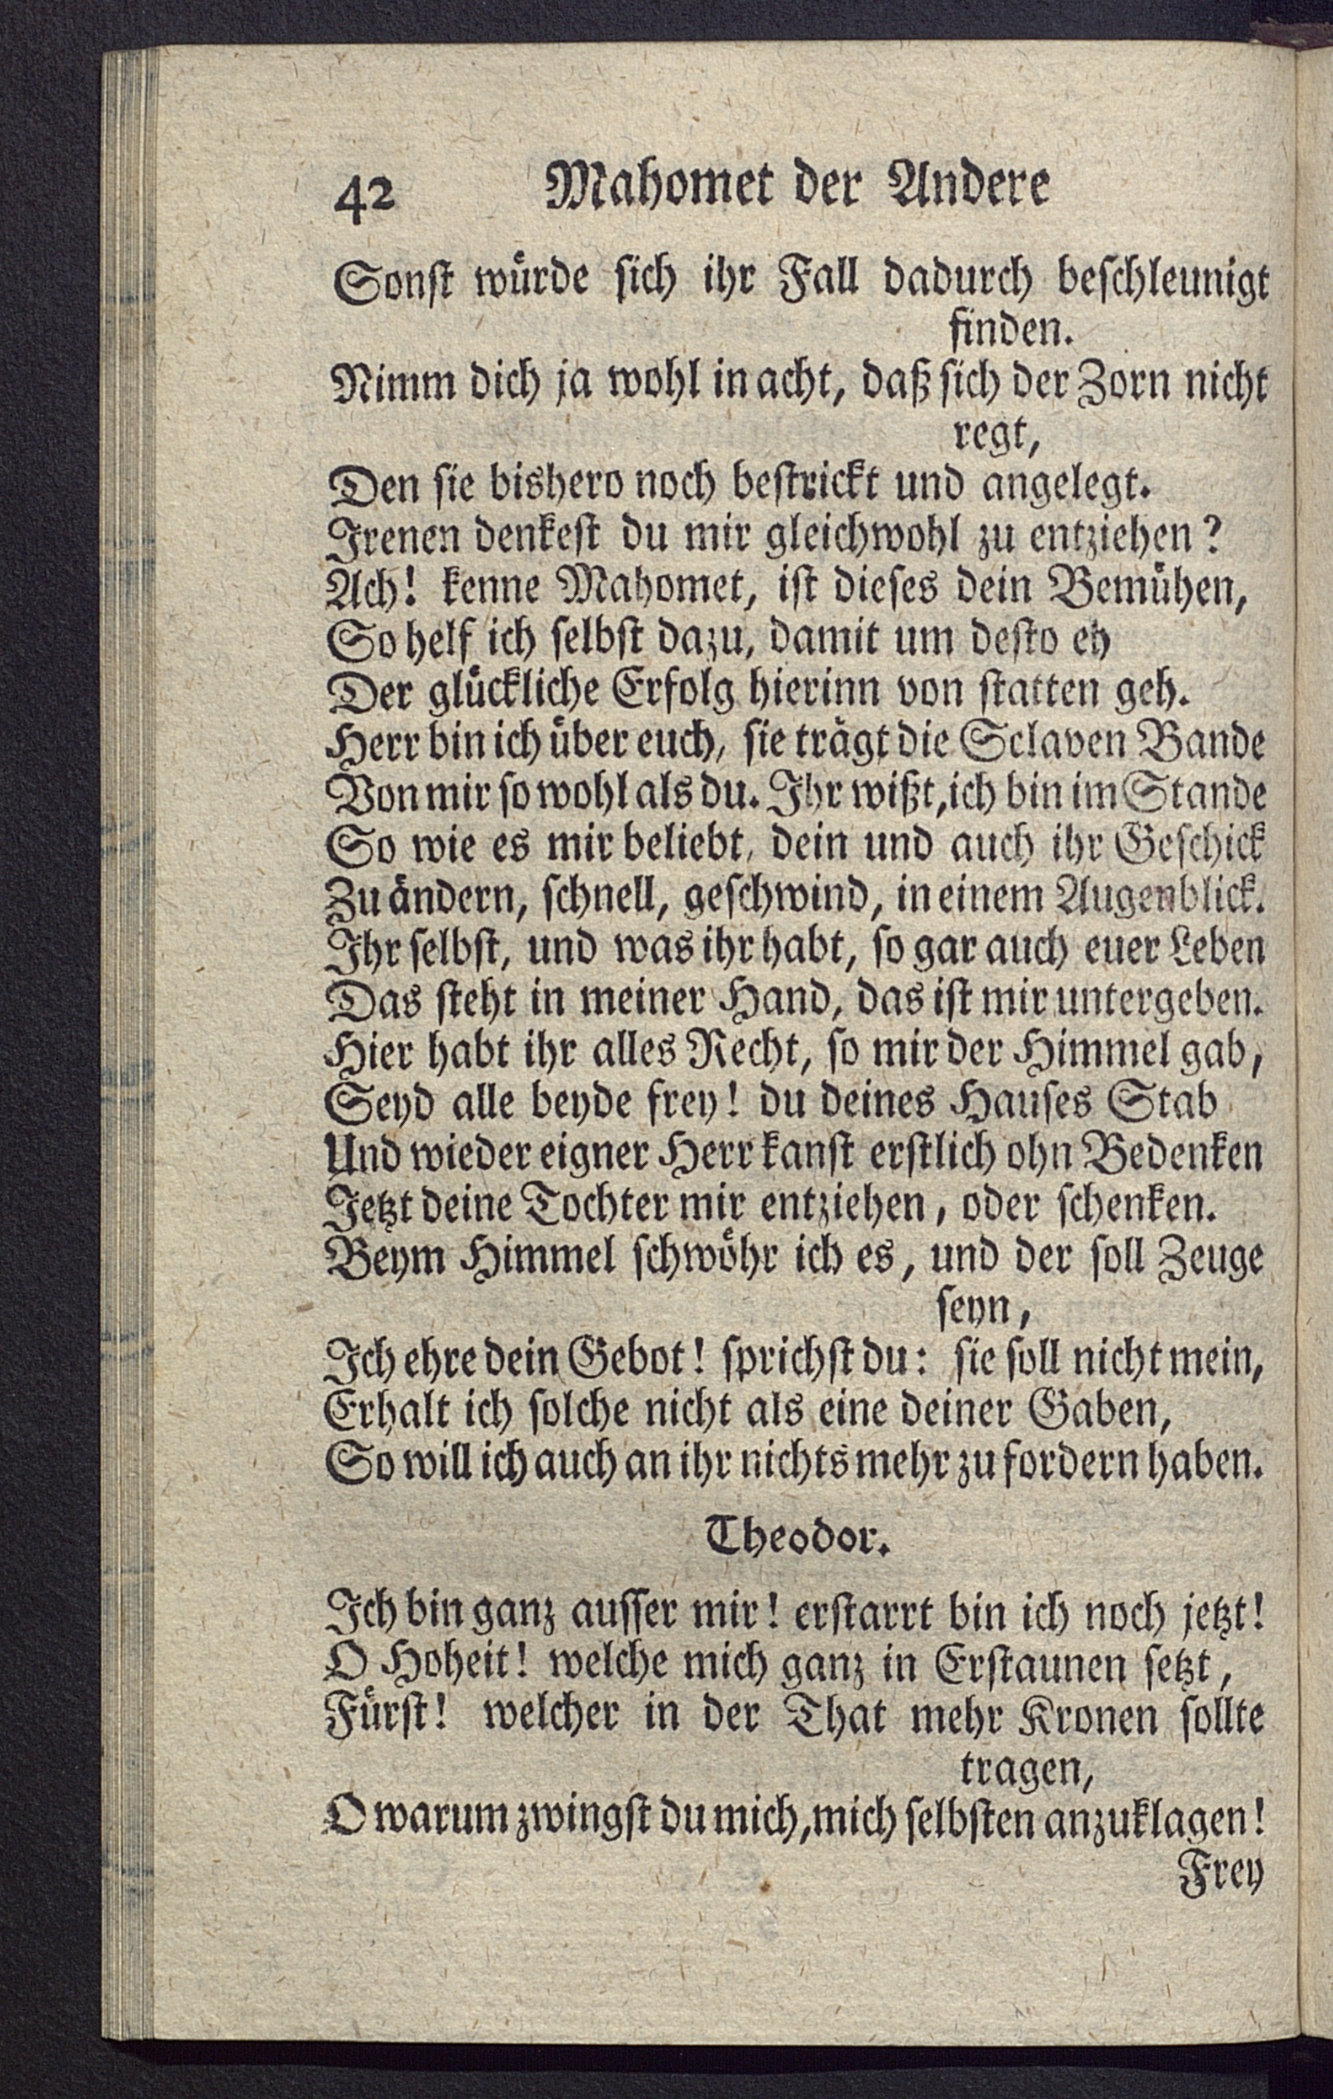 42 Mahomet der Andere
Sonst würde sich ihr Fall dadurch beschleunigt
finden.
Nimm dich ja wohl in acht, daß sich der Zorn nicht
regt,
Den sie bishero noch bestrickt und angelegt.
Irenen denkest du mir gleichwohl zu entziehen?
Ach! kenne Mahomet, ist dieses dein Bemühen,
So helf ich selbst dazu, damit um desto eh
Der glückliche Erfolg hierinn von statten geh.
Herr bin ich über euch, sie trägt die Sclaven Bande
Von mir so wohl als du. Ihr wißt, ich bin im Stande
So wie es mir beliebt, dein und auch ihr Geschick
Zu ändern, schnell, geschwind, in einem Augenblick.
Ihr selbst, und was ihr habt, so gar auch euer Leben
Das steht in meiner Hand, das ist mir untergeben.
Hier habt ihr alles Recht, so mir der Himmel gab,
Seyd alle beyde frey! du deines Hauses Stab
Und wieder eigner Herr kanst erstlich ohn Bedenken
Jetzt deine Tochter mir entziehen, oder schenken.
Beym Himmel schwöhr ich es, und der soll Zeuge
seyn,
Ich ehre dein Gebot! sprichst du: sie soll nicht mein,
Erhalt ich solche nicht als eine deiner Gaben,
So will ich auch an ihr nichts mehr zu fordern haben.
Theodor.
Ich bin ganz ausser mir! erstarrt bin ich noch jetzt!
O Hoheit! welche mich ganz in Erstaunen setzt,
Fürst! welcher in der That mehr Kronen sollte
tragen,
O warum zwingst du mich, mich selbsten anzuklagen!
Frey